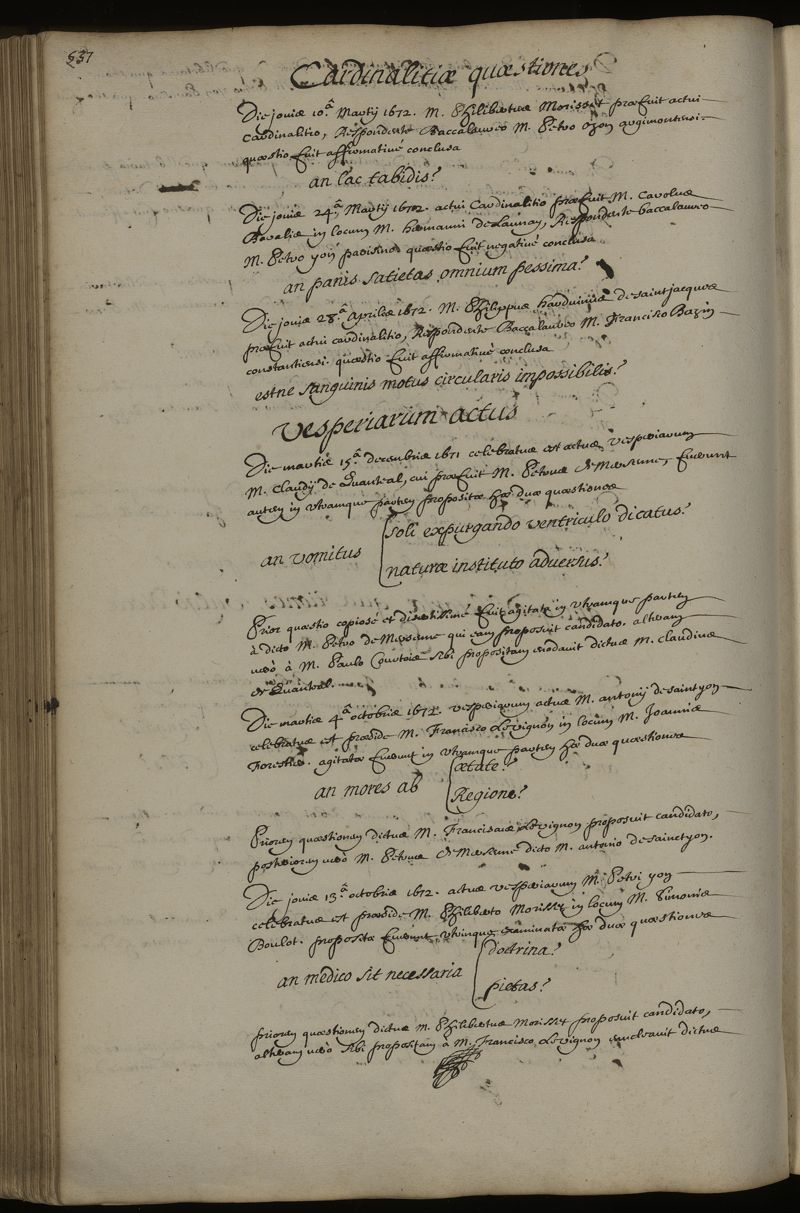 537
Cardinalitiæ quæstiones
Die jovis 10.ª Martij 1672. M. Philibertus Morisset præfuit actui
cardinalitio, Respondente Baccalaureo M. Petro ozon
quæstio fuit affirmativè conclusa
an lac tabidis?
Die jovis 24.ª Martij 1672. actui Cardinalitio præfuit M. Carolus
Baralis in locum M. hermanni de Launay, Respondente baccalaureo
M. Petro yon parisino quæstio fuit negativè conclusa
an panis satietas omnium pessima?
Die jovis 28.ª Aprilis 1672. M. Philippus harduinus de saint jacques
præfuit actui cardinalitio, Respondente Baccalaureo M. Francisco Bazin
constantiensi. quæstio fuit affirmativè conclusa
estne sanguinis motus circularis impossibilis?
Vesperiarum actus
Die martis 15.ª decembris 1671 celebratus est actus vesperiarum
M. Claudij de Quanteal, cui præfuit M. Petrus de Mersenne, fuerunt
autem in utramque partem propositæ hæ duæ quæstiones
an vomitus
soli expurgando ventriculo dicatus?
naturæ instituto adversus?
Prior quæstio copiosè et disertissimè fuit agitata in utramque partem
à dicto M. Petro de Mersenne qui eam proposuit candidato. alteram
verò à M. Paulo Courtois sibi propositam enodavit dictus M. claudius
de Quanteal.
Die martis 4.ª octobris 1672. vesperiarum actus M. antonij de saintyon
celebratus est præside M. Francisco Levignon in locum M. Joannis
Forestier. agitatæ fuerunt in utramque partem hæ duæ quæstiones
an mores ab
ætate?
Regione?
Priorem quæstionem dictus M. Franciscus Levignon proposuit candidato,
posteriorem verò M. Petrus de Mersenne dicto M. antonio de sainctyon.
Die jovis 13.ª octobris 1672. actus vesperiarum M. Petri yon
celebratus est præside M. Philiberto Morisset in locum M. Simonis
Boulot. propositæ fuerunt utrinque examinatæ hæ duæ quæstiones
an medico sit necessaria
doctrina?
pietas?
priorem quæstionem dictus M. Philibertus Morisset proposuit candidato,
alteram verò sibi propositam à M. Francisco Levignon enucleavit dictus